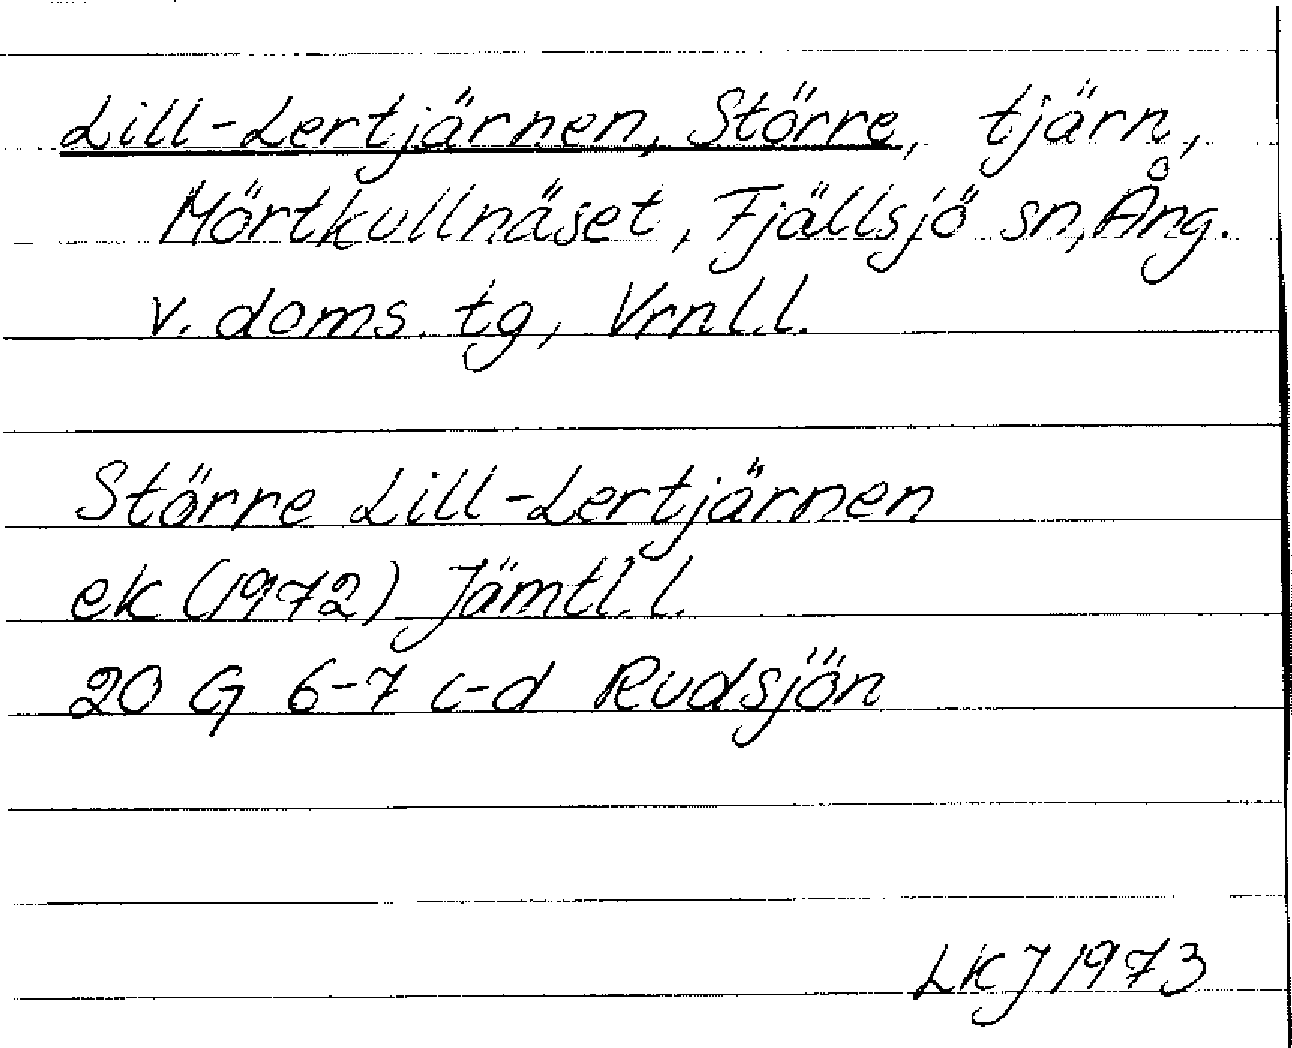 Lill-Lertjärnen, Större, tjärn,
Mörtkullnäset, Fjällsjö sn, Ång.
v. doms. tg, Vrnl.l.
Större Lill-Lertjärnen
ek (1972) Jämtl.l.
20 G 6-7 c-d Rudsjön
LKJ 1973